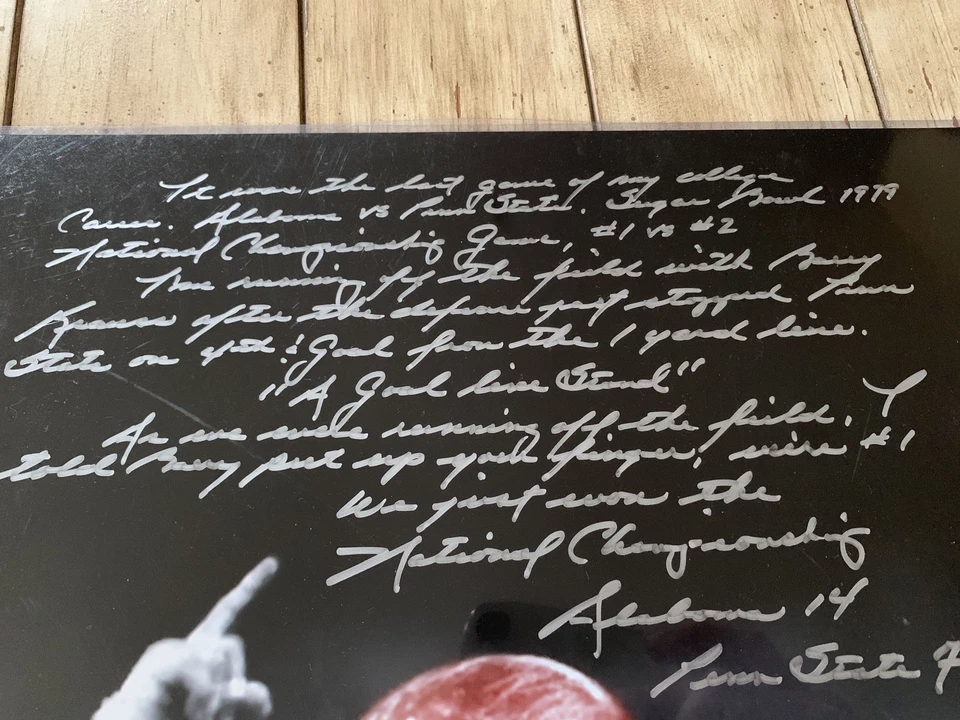 It was the last game of my college
Career. Alabama vs Penn State. Sugar Bowl 1979
National Championship Game, #1 vs #2
I was running off the field with Barry
Krauss after the defense just stopped Penn
State on 4th & Goal from the 1 yard line.
"A Goal line Stand"
As we were running off the field, I
told Barry put up your finger, we're #1
We just won the
National Championship
Alabama 14
Penn State 7